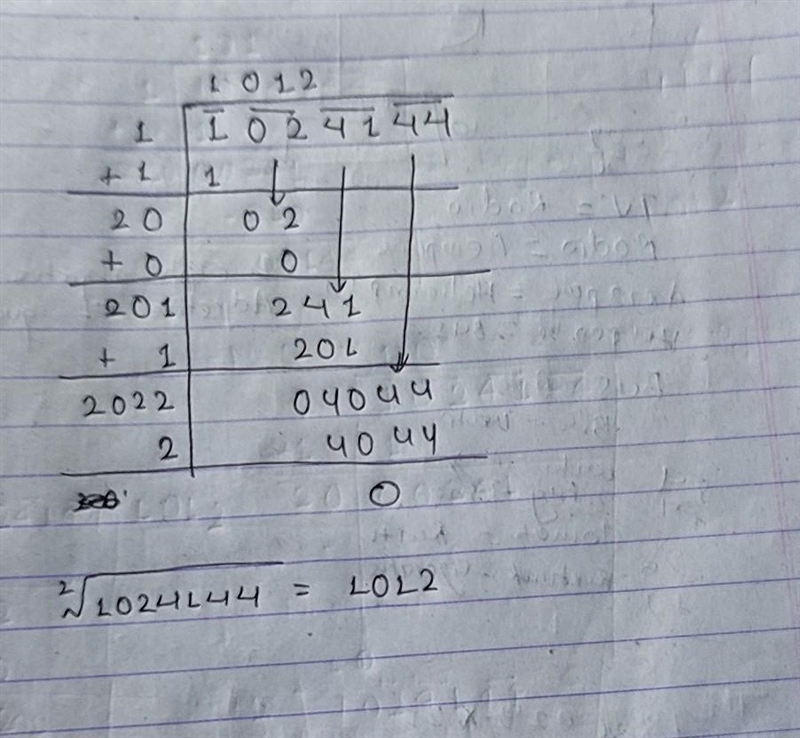 1 0 1 2
1 1 02 41 44
+ 1 1
20 02
+ 0 0
201 241
+ 1 201
2022 04044
2 4044
0
²√1024144 = 1012